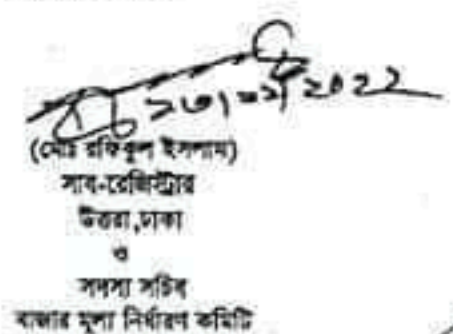 ২০২২
(মোঃ রফিকুল ইসলাম)
সাব-রেজিস্ট্রার
উত্তরা,ঢাকা
ও
সদস্য সচিব
বাজার মূল্য নির্ধারণ কমিটি